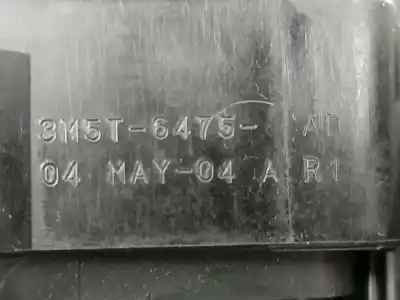 3M5T-6475- AD
04 MAY-04 A R1